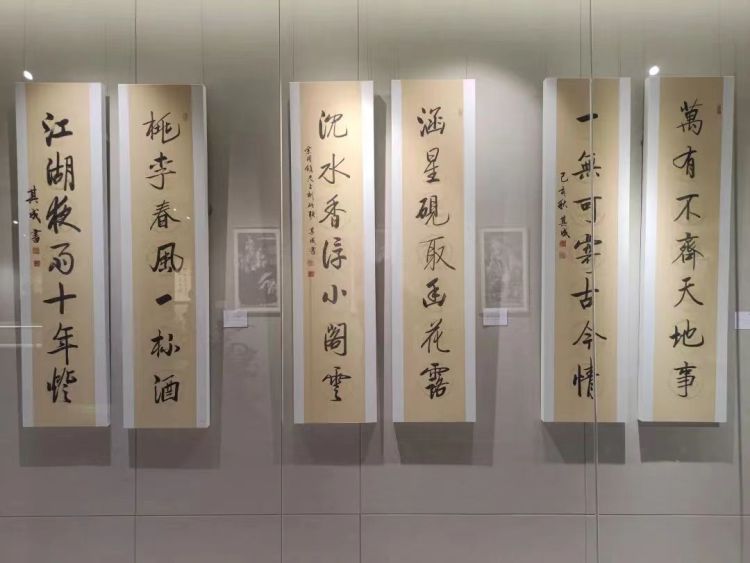 萬有不齊天地事
一無可寄古今情
己亥秋 其成
涵星硯取幽花露
沈水香浮小閣雲
其成書
桃李春風一杯酒
江湖夜雨十年燈
其成書